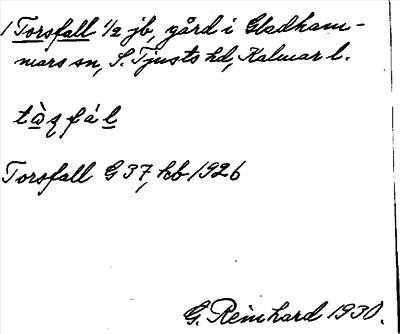 1 Torsfall 1/2 jb, gård i Gladham-
mars sn, S. Tjusts hd, Kalmar l.
Torsfall G 37, hb 1926
G. Reinhard 1930.